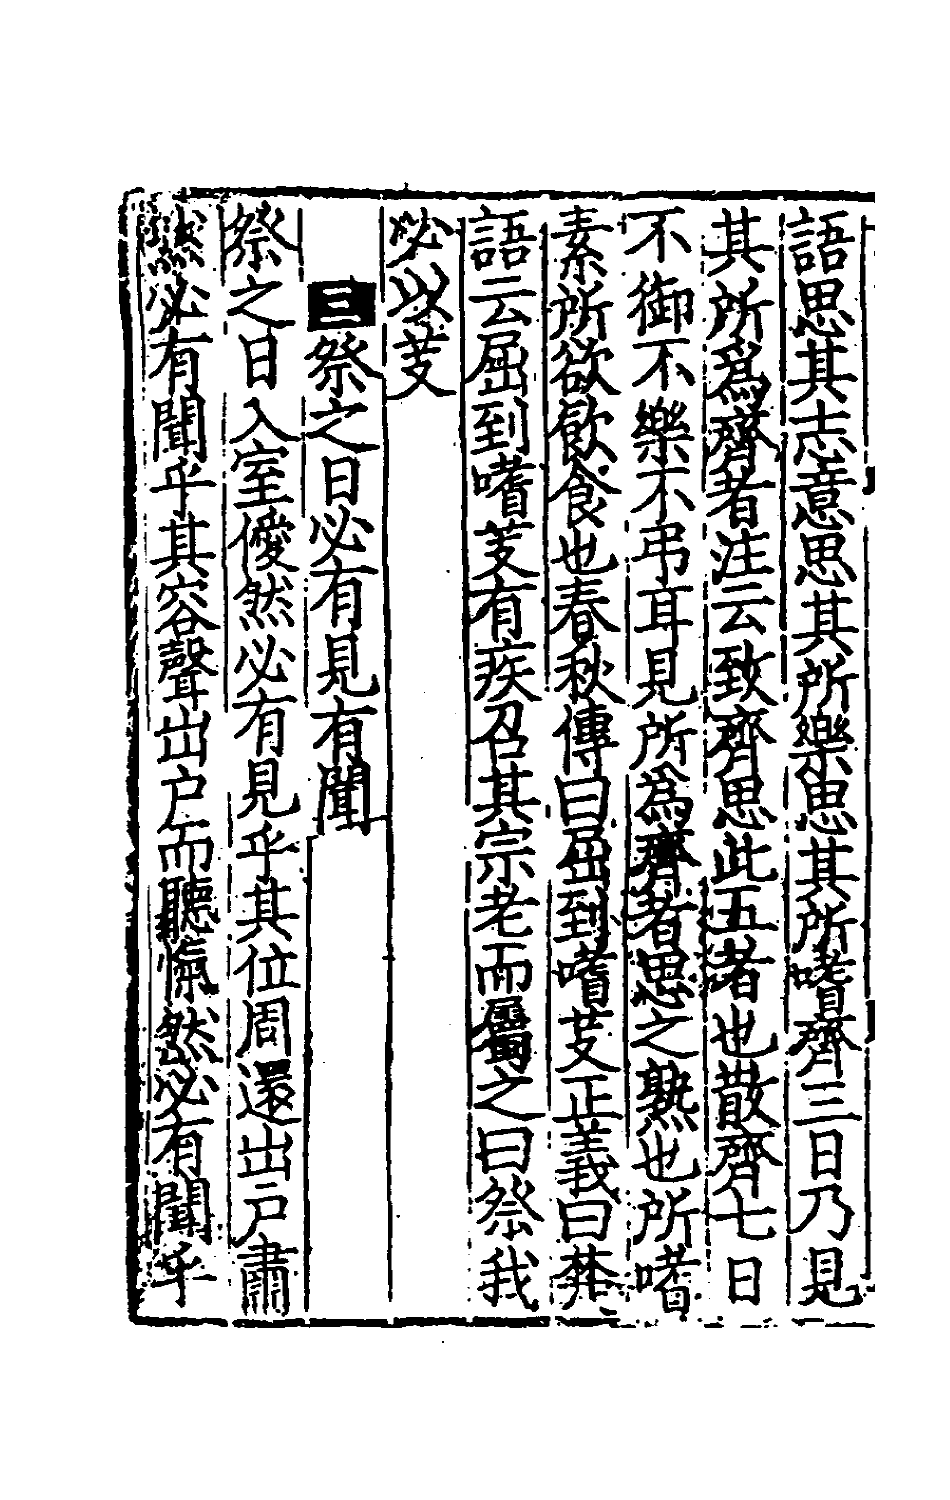 語思其志意思其所樂思其所嗜齊三日乃見
其所爲齊者注云致齊思此五者也散齊七日
不御不樂不弔耳見所爲齊者思之熟也所嗜
素所欲飲食也春秋傳曰屈到嗜芰正義曰楚
語云屈到嗜芰有疾召其宗老而屬之曰祭我
必以芰
三祭之日必有見有聞
祭之日入室僾然必有見乎其位周還出戸肅
然必有聞乎其容聲出户而聽愾然必有聞乎